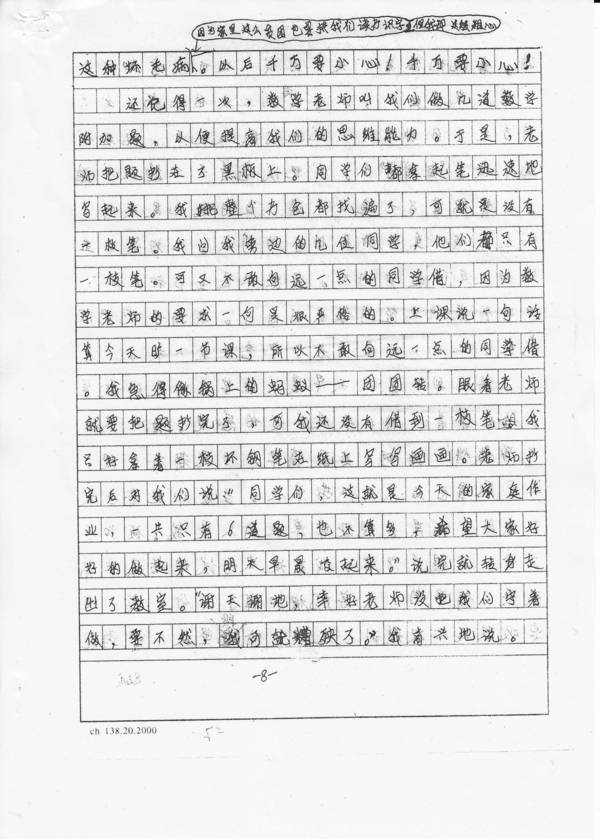 因为家里这么贫困也要供我们读书识字但我却这样粗心
这种坏毛病。以后千万要小心！千万要小心！
还记得一次，数学老师叫我们做几道数学
附加题，以便提高我们的思维能力。于是，老
师把题抄在了黑板上。同学们都拿起笔迅速地
写起来。我把整个书包都找遍了，可就是没有
这枝笔。我问我旁边的几位同学，他们都只有
一枝笔。可又不敢向远一点的同学借，因为数
学老师的要求一向是很严格的。上课说一句话
算今天旷一节课，所以不敢向远一点的同学借
。我急得像锅上的蚂蚁——团团转。眼看老师
就要把题抄完了，可我还没有借到一枝笔，我
只好拿着一枝坏钢笔在纸上写写画画。老师抄
完后对我们说：“同学们，这就是今天的家庭作
业，一共只有6道题，也不算多，希望大家好
好的做起来，明天早晨交起来。”说完就转身走
出了教室。“谢天谢地，幸好老师没也我们守着
做，要不然，我可就糟殃了。”我高兴地说。
-8-
ch 138.20.2000